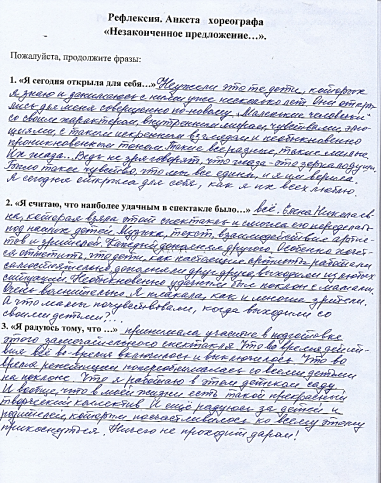 Рефлексия. Анкета хореографа
«Незаконченное предложение…».
Пожалуйста, продолжите фразы:
1. «Я сегодня открыла для себя…» Неужели это те дети, которых
я знаю и занимаюсь с ними уже несколько лет. Они откры-
лись для меня совершенно по-новому. Маленькие человечки
со своим характером, внутренним миром, чувствами, эмо-
циями, с таким искренним взглядом и необыкновенно
проникновенным такие все разные, такие милые.
Их глаза. Ведь не зря говорят, что глаза - это зеркало души.
Было такое чувство, что мы все едины, и я поверила.
Я сегодня открыла для себя, как я их всех люблю.
2. «Я считаю, что наиболее удачным в спектакле было…» всё. Елена Николаев-
на, которая взяла этот спектакль и смогла его переделать
под наших детей. Музыка, текст, взаимодействие артис-
тов и зрителей. Каждый дополнял другого. Особенно хочет-
ся отметить, что дети, как настоящие артисты работали
самостоятельно, дополняли друг друга, выходили из любых
ситуаций. Необыкновенно удачным был поклон с мамами.
Очень волнительно. Я плакала, как и многие зрители.
А что мамы почувствовали, когда выходили со
своими детьми?..
3. «Я радуюсь тому, что …» принимала участие в подготовке
этого замечательного спектакля. Что во время дейст-
вия всё во-время включилось и выключилось. Что во
время репетиции со всеми детьми
на поклоне. Что я работаю в этом детском саду.
И вообще, что в моей жизни есть такой прекрасный
творческий коллектив. И ещё радуюсь за детей и
родителей, которым посчастливилось ко всему этому
прикоснуться. Ничего не проходит даром!